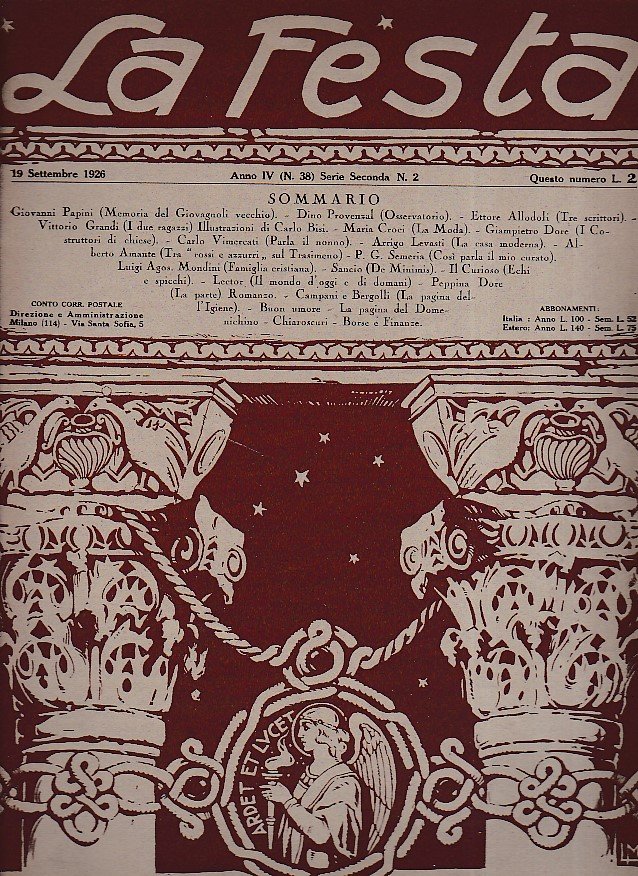 La Festa
19 Settembre 1926
Anno IV (N. 38) Serie Seconda N. 2
Questo numero L. 2
SOMMARIO
Giovanni Papini (Memoria del Giovagnoli vecchio). - Dino Provenzal (Osservatorio). - Ettore Allodoli (Tre scrittori). -
Vittorio Grandi (I due ragazzi) Illustrazioni di Carlo Bisi. - Maria Croci (La Moda). - Giampietro Dore (I Co-
struttori di chiese). - Carlo Vimercati (Parla il nonno). - Arrigo Levasti (La casa moderna). - Al-
berto Amante (Tra "rossi e azzurri„ sul Trasimeno) - P. G. Semeria (Così parla il mio curato).
Luigi Agos. Mondini (Famiglia cristiana). - Sancio (De Minimis). - Il Curioso (Echi
e spicchi). - Lector (Il mondo d'oggi e di domani) - Peppina Dore
(La parte) Romanzo. - Campani e Bergolli (La pagina del-
l'Igiene). - Buon umore - La pagina del Dome-
nichino - Chiaroscuri - Borse e Finanze.
CONTO CORR. POSTALE
Direzione e Amministrazione
Milano (114) - Via Santa Sofia, 5
ABBONAMENTI:
Italia : Anno L. 100 - Sem. L. 52
Estero: Anno L. 140 - Sem. L. 75
ARDET ET LVCET